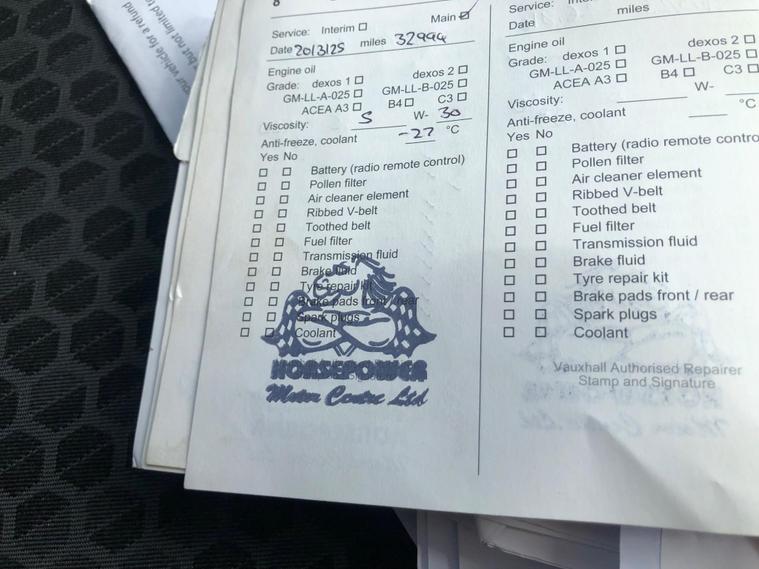 your vehicle for a refund
but not limited to
8
Service: Interim ☐ Main ☑
Date 20/3/25 miles 32994
Engine oil
Grade: dexos 1 ☐ dexos 2 ☐
GM-LL-A-025 ☐ GM-LL-B-025 ☐
ACEA A3 ☐ B4 ☐ C3 ☐
Viscosity: 5 W- 30
Anti-freeze, coolant -27 °C
Yes No
☐ ☐ Battery (radio remote control)
☐ ☐ Pollen filter
☐ ☐ Air cleaner element
☐ ☐ Ribbed V-belt
☐ ☐ Toothed belt
☐ ☐ Fuel filter
☐ ☐ Transmission fluid
☐ ☐ Brake fluid
☐ ☐ Tyre repair kit
☐ ☐ Brake pads front / rear
☐ ☐ Spark plugs
☐ ☐ Coolant
HORSEPOWER
Motor Centre Ltd
Service:
Date miles
Engine oil
Grade: dexos 1 ☐ dexos 2 ☐
GM-LL-A-025 ☐ GM-LL-B-025 ☐
ACEA A3 ☐ B4 ☐ C3 ☐
Viscosity: W-
Anti-freeze, coolant °C
Yes No
☐ ☐ Battery (radio remote contro
☐ ☐ Pollen filter
☐ ☐ Air cleaner element
☐ ☐ Ribbed V-belt
☐ ☐ Toothed belt
☐ ☐ Fuel filter
☐ ☐ Transmission fluid
☐ ☐ Brake fluid
☐ ☐ Tyre repair kit
☐ ☐ Brake pads front / rear
☐ ☐ Spark plugs
☐ ☐ Coolant
Vauxhall Authorised Repairer
Stamp and Signature